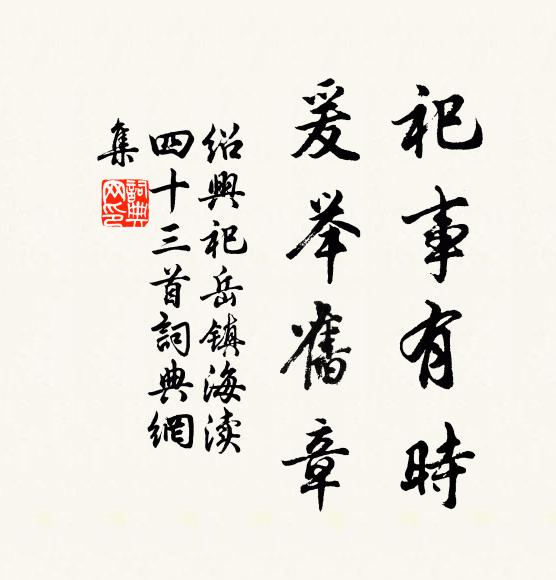 祀事有時
爰举舊章
绍興祀岳镇海渎
四十三首詞典網
集
詞典
网印